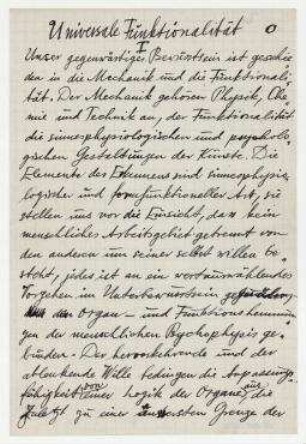 Universale Funktionalität 0
I
Unser gegenwärtiges Bewusstsein ist geschie
den in die Mechanik und die Funktionali-
tät. Der Mechanik gehören Physik, Che-
mie und Technik an, der Funktionalität
die sinnesphysiologischen und psycholo-
gischen Gestaltungen der Künste. Die
Elemente des Erkennens sind sinnesphysio-
logischer und formfunktioneller Art, sie
stellen uns vor die Einsicht, dass kein
menschliches Arbeitsgebiet getrennt von
den anderen um seiner selbst willen be-
steht, jedes ist an ein wertauswählendes
Vorgehen im Unterbewusstsein
Organ- und Funktionshemmun
gen der menschlichen Psychophysis ge-
bunden. Der hervorkehrende und der
ablenkende Wille bedingen die Anpassungs-
fähigkeit von einer Logik der Organe aus, die
zuletzt zu einer äussersten Grenze der